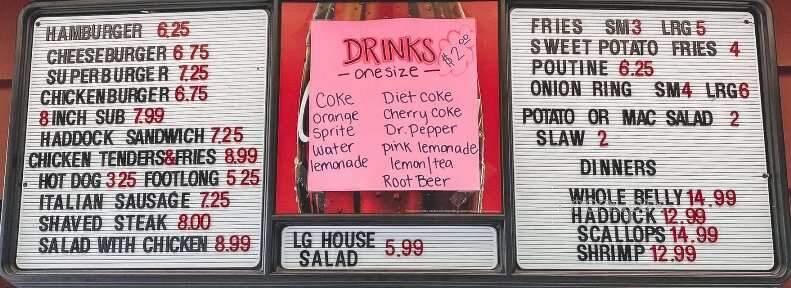 HAMBURGER 6.25
CHEESEBURGER 6 75
SUPERBURGER 7.25
CHICKENBURGER 6.75
8 INCH SUB 7.99
HADDOCK SANDWICH 7.25
CHICKEN TENDERS&FRIES 8.99
HOT DOG 3 25 FOOTLONG 5 25
ITALIAN SAUSAGE 7.25
SHAVED STEAK 8.00
SALAD WITH CHICKEN 8.99
DRINKS $2.00
- one size -
Coke Diet coke
orange Cherry Coke
Sprite Dr. Pepper
water pink lemonade
lemonade lemon/tea
Root Beer
LG HOUSE SALAD 5.99
FRIES SM 3 LRG 5
SWEET POTATO FRIES 4
POUTINE 6.25
ONION RING SM4 LRG6
POTATO OR MAC SALAD 2
SLAW 2
DINNERS
WHOLE BELLY 14.99
HADDOCK 12.99
SCALLOPS 14.99
SHRIMP 12.99